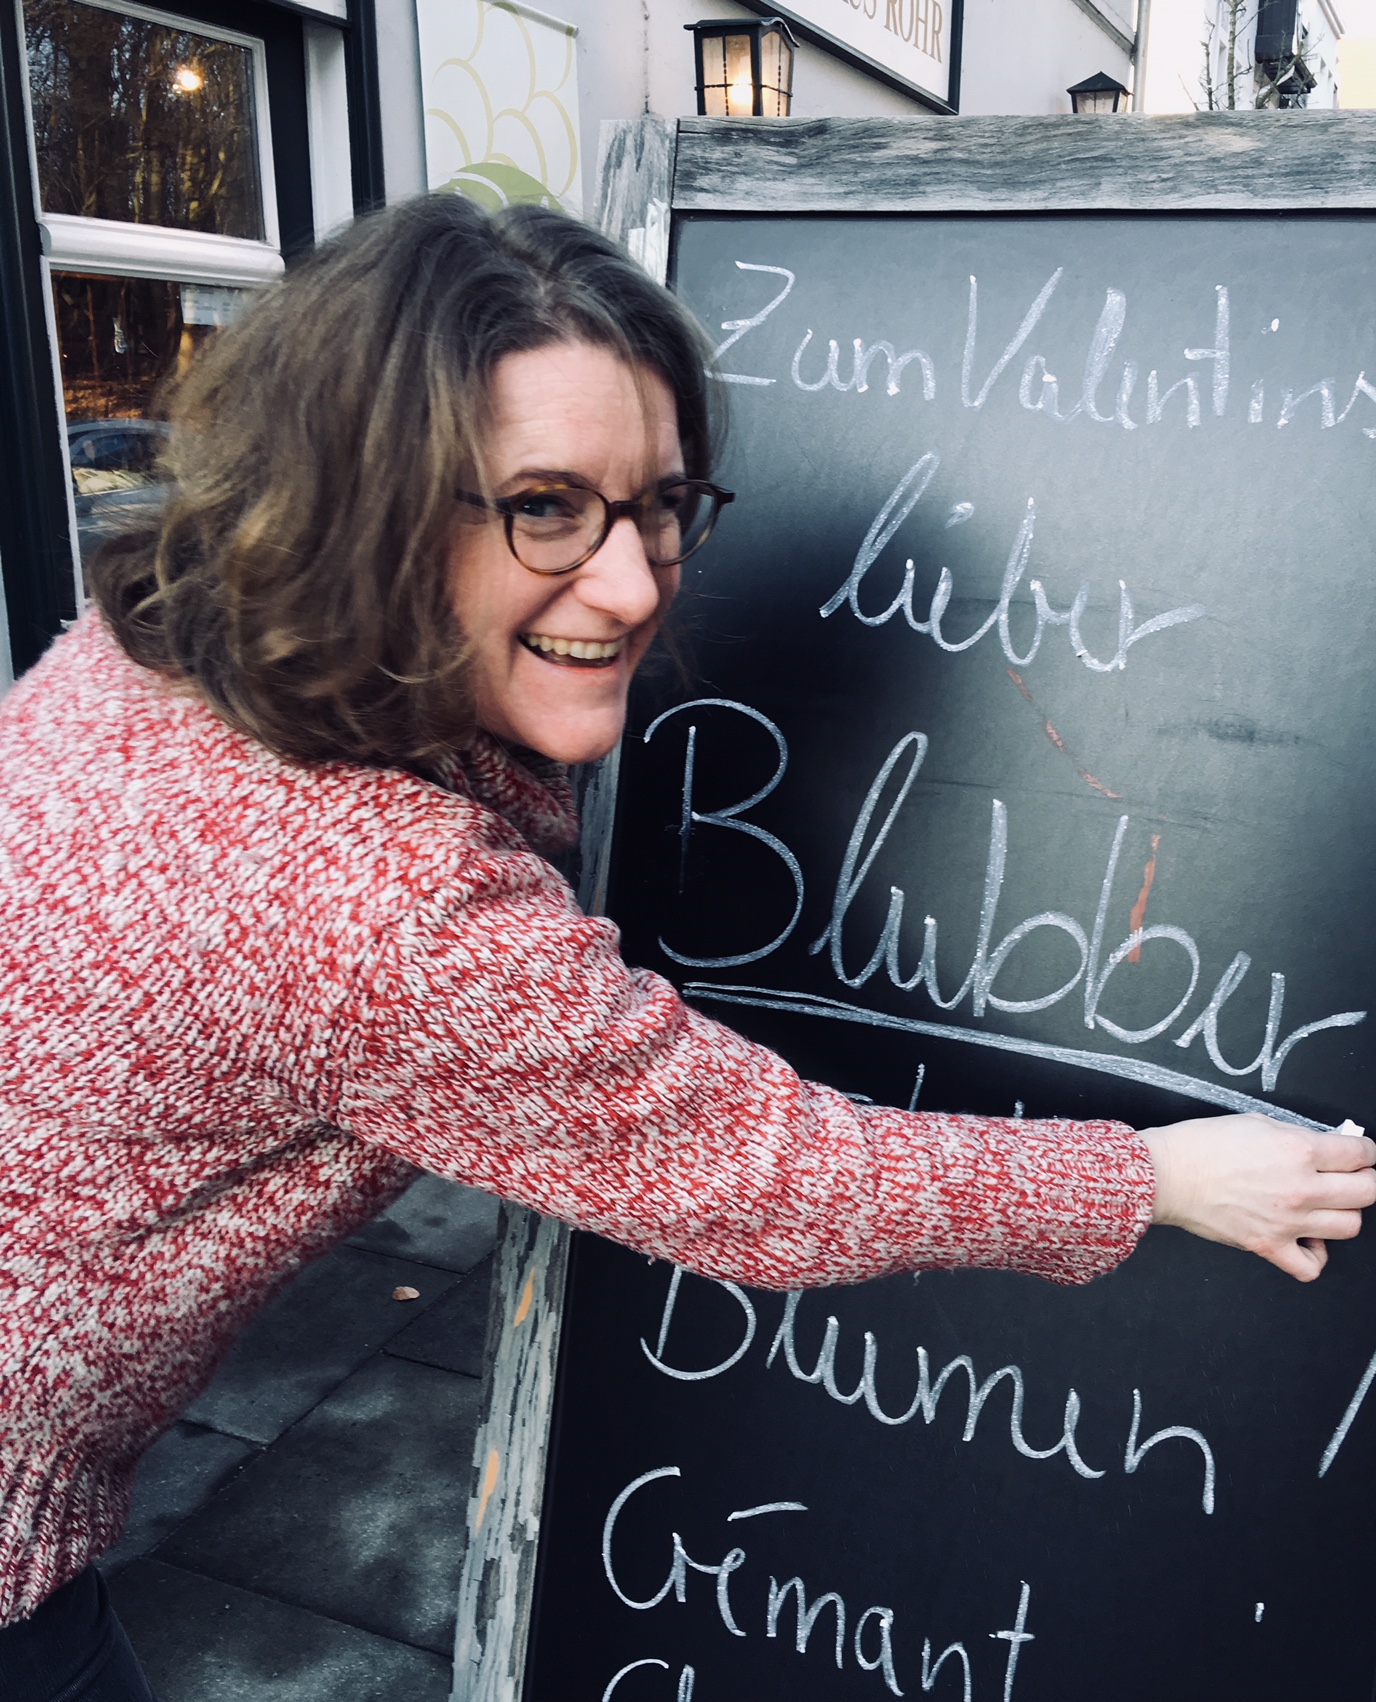 ROHR
Zum Valentins
lieber
Blubber
Blumen /
Crémant